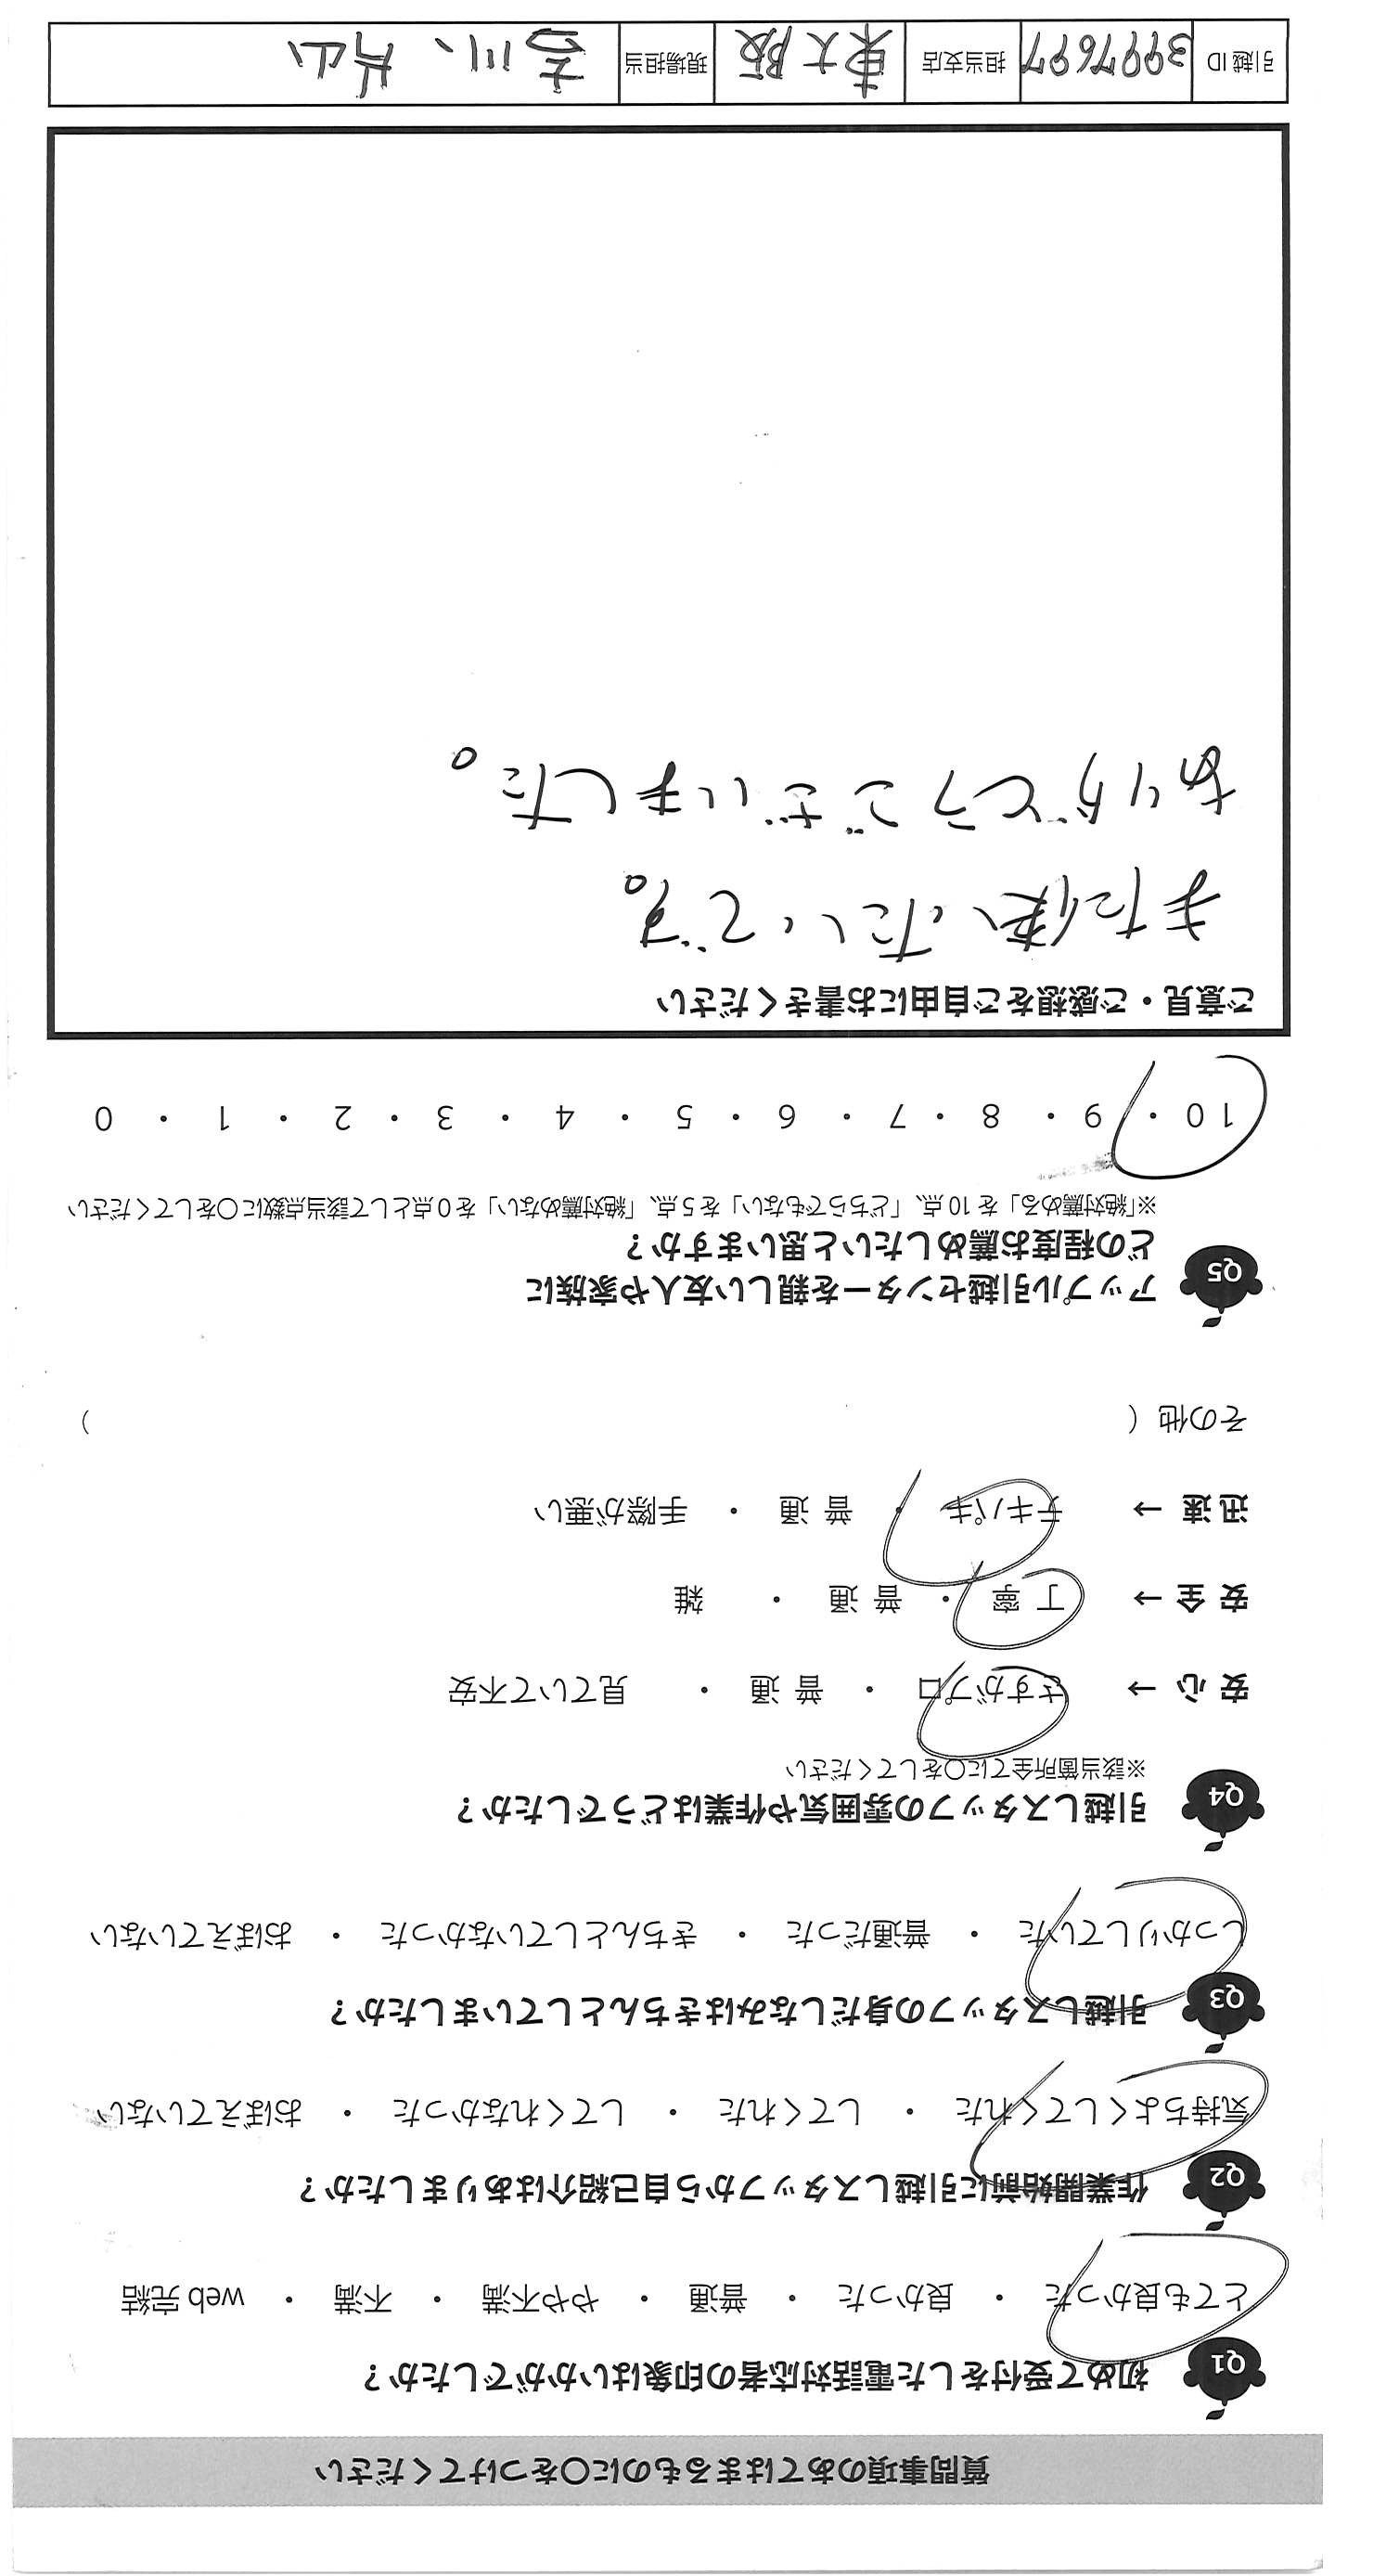 質問事項のあてはまるものに〇をつけてください
Q1 初めて受付をした電話対応者の印象はいかがでしたか？
とても良かった ・ 良かった ・ 普通 ・ やや不満 ・ 不満 ・ web 完結
Q2 作業開始前に引越しスタッフから自己紹介はありましたか？
気持ちよくしてくれた ・ してくれた ・ してくれなかった ・ おぼえていない
Q3 引越しスタッフの身だしなみはきちんとしていましたか？
しっかりしていた ・ 普通だった ・ きちんとしていなかった ・ おぼえていない
Q4 引越しスタッフの雰囲気や作業はどうでしたか？
※該当箇所全てに〇をしてください
安 心 → さすがプロ ・ 普 通 ・ 見ていて不安
安 全 → 丁 寧 ・ 普 通 ・ 雑
迅 速 → テキパキ ・ 普 通 ・ 手際が悪い
その他（ ）
Q5 アップル引越センターを親しい友人や家族に
どの程度お薦めしたいと思いますか？
※「絶対薦める」を 10 点、「どちらでもない」を 5 点、「絶対薦めない」を 0 点として該当点数に〇をしてください
10 ・ 9 ・ 8 ・ 7 ・ 6 ・ 5 ・ 4 ・ 3 ・ 2 ・ 1 ・ 0
ご意見・ご感想をご自由にお書きください
また使いたいです。
ありがとうございました。
引越 ID 3997697 担当支店 東大阪 現場担当 吉川、片山